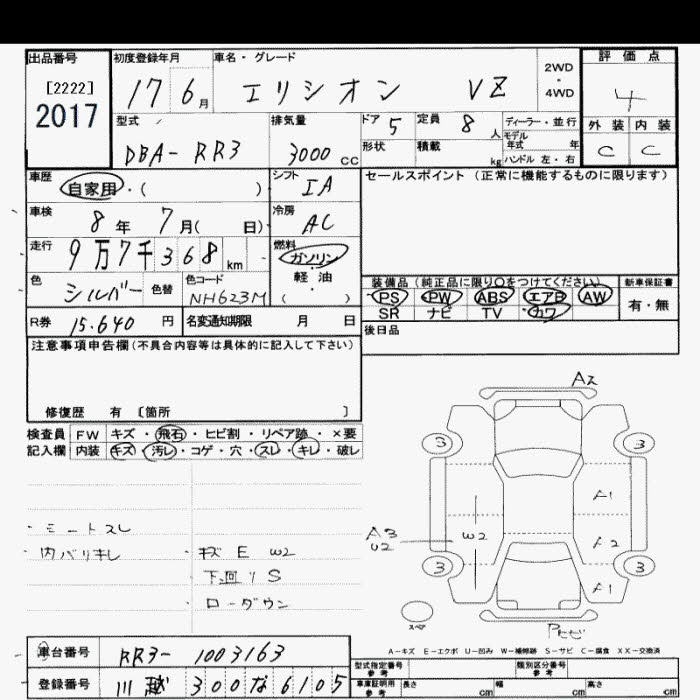 出品番号 初度登録年月 車名・グレード 2WD・4WD 評価点
[2222]
2017 17 6月 エリシオン VZ 4
型式 排気量 ドア 5 定員 8人 ディーラー・並行 外装 内装
モデル年式 年
DBA-RR3 3000cc 形状 積載 kg ハンドル 左・右 C C
車歴 自家用・( ) シフト IA セールスポイント (正常に機能するものに限ります)
車検 8年 7月( 日) 冷房 AC
走行 9万7千368km 燃料 ガソリン
軽・油
( )
色 シルバー 色替 色コード NH623M 装備品 (純正品に限り○をつけてください) 新車保証書
PS PW ABS エアB AW 有・無
SR ナビ TV カワ
R券 15.640円 名変通知期限 月 日 後日品
注意事項申告欄(不具合内容等は具体的に記入して下さい)
修復歴 有 [箇所 ]
検査員 FW キズ・飛石・ヒビ割・リペア跡・×要
記入欄 内装 キズ・汚レ・コゲ・穴・スレ・キレ・破レ
A2
3 3
A1
・ミートスレ
・内バリキレ
・キズE W2
下回りS
・ローダウン
A3
U2
W2
A2
3 3
A1
スペア
Pヒビ
A-キズ E-エクボ U-凹み W-補修跡 S-サビ C-腐食 XX-交換済
車台番号 RR3-1003163
登録番号 川越 300 な 6105
型式指定番号 参考 類別区分番号 参考
車庫証明用 参考 長さ cm 幅 cm 高さ cm